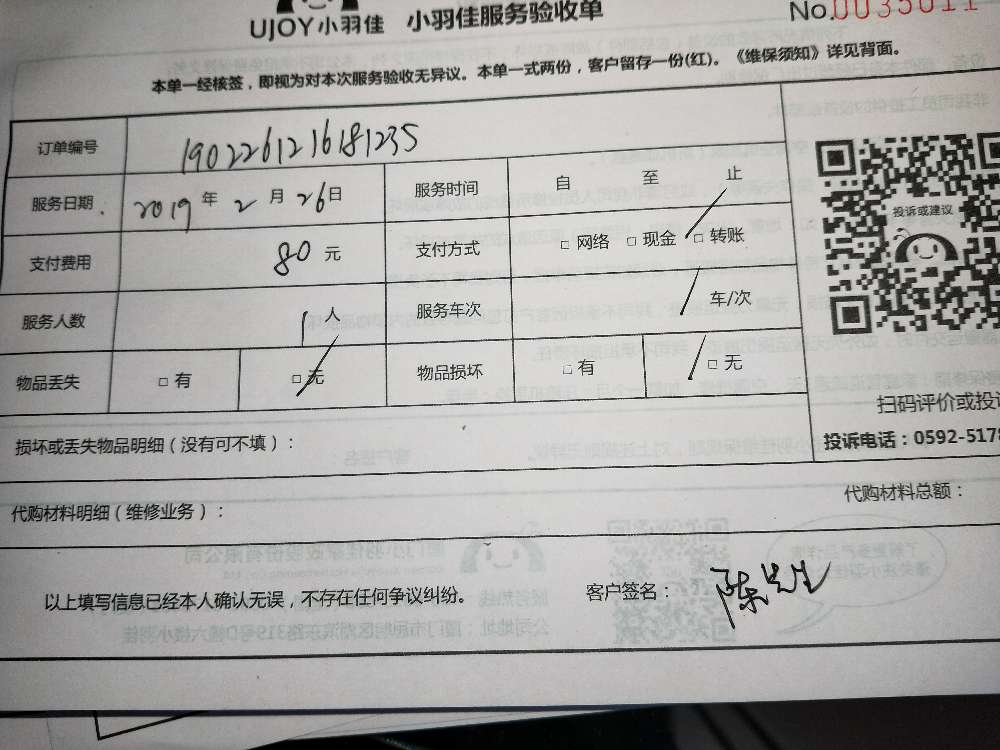 UJOY小羽佳 小羽佳服务验收单 No.0035011
本单一经核签，即视为对本次服务验收无异议。本单一式两份，客户留存一份(红)。《维保须知》详见背面。
订单编号 1902261216181235
服务日期. 2019 年 2 月 26日 服务时间 自 至 止
支付费用 80 元 支付方式 □ 网络 □ 现金 □ 转账
服务人数 1 人 服务车次 / 车/次
物品丢失 □ 有 □ 无 物品损坏 □ 有 □ 无
投诉或建议
扫码评价或投诉
投诉电话：0592-5178
损坏或丢失物品明细（没有可不填）：
代购材料明细（维修业务）： 代购材料总额：
以上填写信息已经本人确认无误，不存在任何争议纠纷。 客户签名： 陈先生